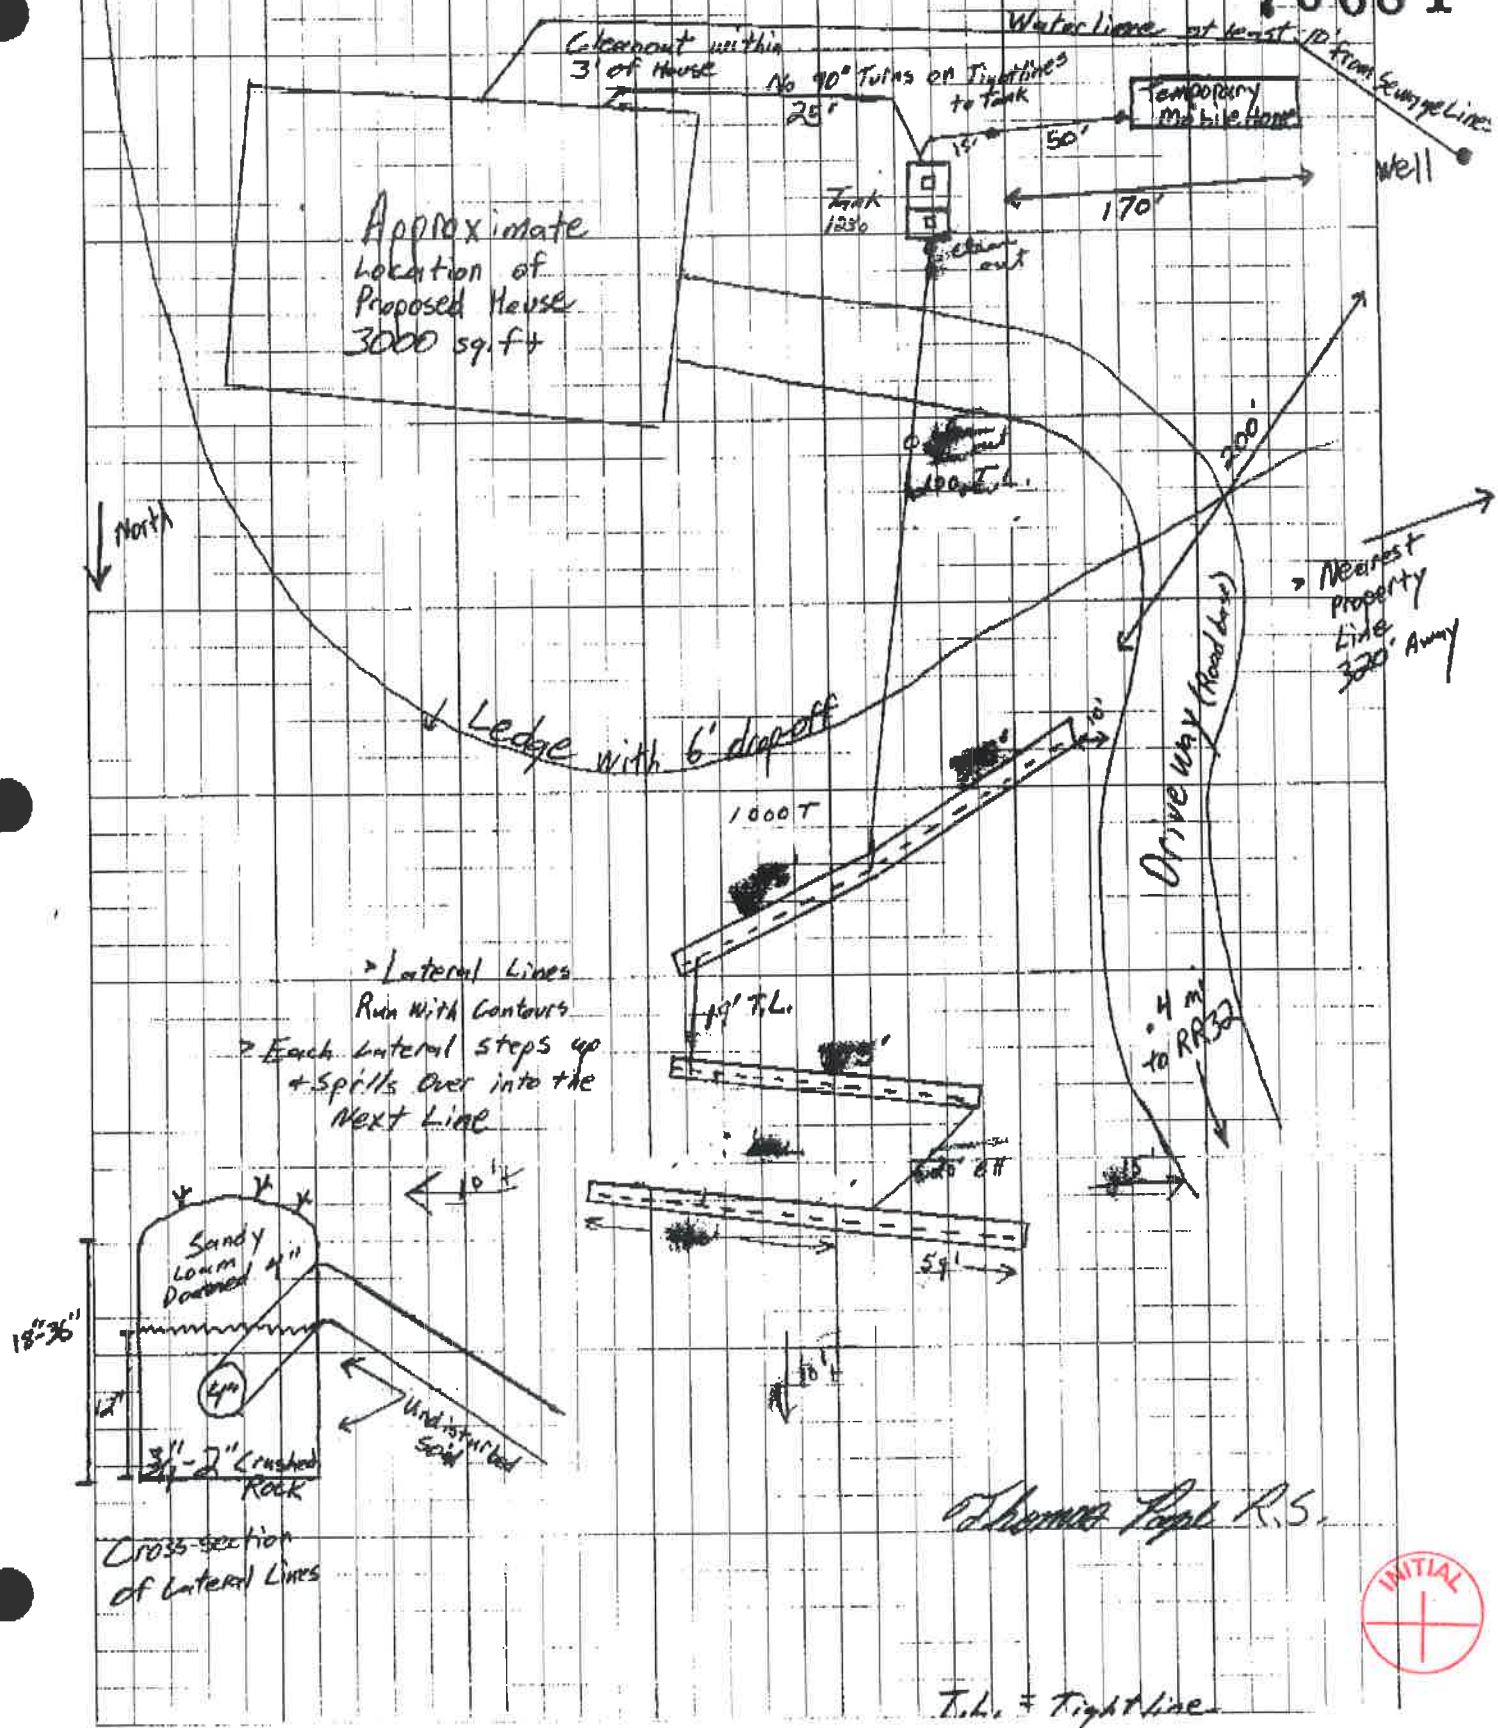 Water line at least 10'
from Sewage Lines
Cleanout within
3' of House
No 90° Turns on Tightlines
to Tank
25'
Temporary
Mobile Home
15'
50'
Well
170'
Tank
1250
clean
out
Approximate
Location of
Proposed House
3000 sq. ft
200'
100' T.L.
North
> Nearest
Property
Line
320' Away
Ledge with 6' drop-off
10'
Driveway (Road base)
1000 T
> Lateral Lines
Run with Contours
> Each Lateral steps up
+ Spills Over into the
Next Line
19' T.L.
.4 mi
to RR32
10'+
59'
10'+
Sandy
Loam
Domed 4"
18"-36"
12"
4"
Undisturbed
Soil
3/4"-2" Crushed
Rock
Cross-section
of Lateral Lines
R.S.
INITIAL
T.L. = Tightline